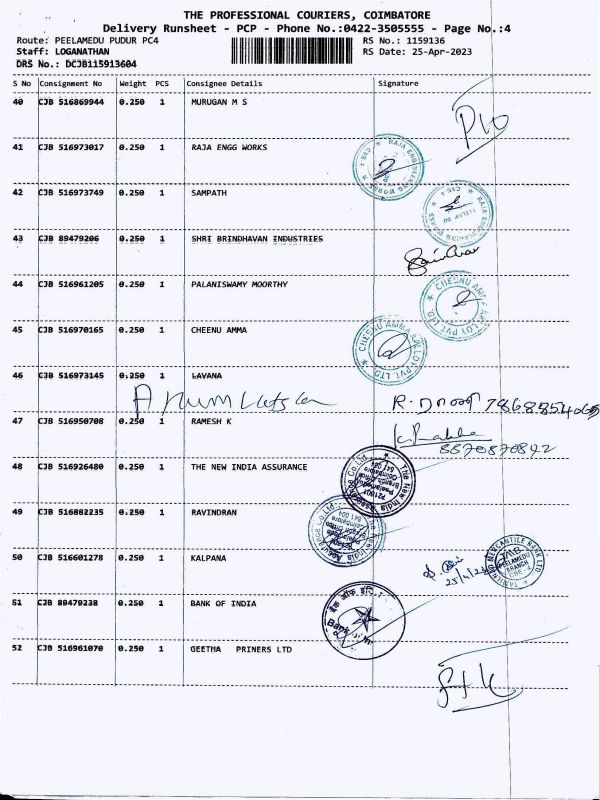 THE PROFESSIONAL COURIERS, COIMBATORE
Delivery Runsheet - PCP - Phone No.:0422-3505555 - Page No.:4
Route: PEELAMEDU PUDUR PC4 RS No.: 1159136
Staff: LOGANATHAN RS Date: 25-Apr-2023
DRS No.: DCJB115913604
S No Consignment No Weight PCS Consignee Details Signature
40 CJB 516869944 0.250 1 MURUGAN M S
41 CJB 516973017 0.250 1 RAJA ENGG WORKS
RAJA ENGINEERING WORKS
42 CJB 516973749 0.250 1 SAMPATH
RAJA ENGINEERING WORKS
43 CJB 89479206 0.250 1 SHRI BRINDHAVAN INDUSTRIES
44 CJB 516961205 0.250 1 PALANISWAMY MOORTHY
CHEENU AMMA ALLOY PVT. LTD
45 CJB 516970165 0.250 1 CHEENU AMMA
CHEENU AMMA ALLOY PVT. LTD
46 CJB 516973145 0.250 1 LAVANA
47 CJB 516950708 0.250 1 RAMESH K
8870870842
48 CJB 516926480 0.250 1 THE NEW INDIA ASSURANCE
The New India Assurance Co. Ltd.
49 CJB 516882235 0.250 1 RAVINDRAN
50 CJB 516601278 0.250 1 KALPANA
TAMILNAD MERCANTILE BANK LTD
TMB
PEELAMEDU
BRANCH
51 CJB 89479238 0.250 1 BANK OF INDIA
52 CJB 516961070 0.250 1 GEETHA PRINERS LTD